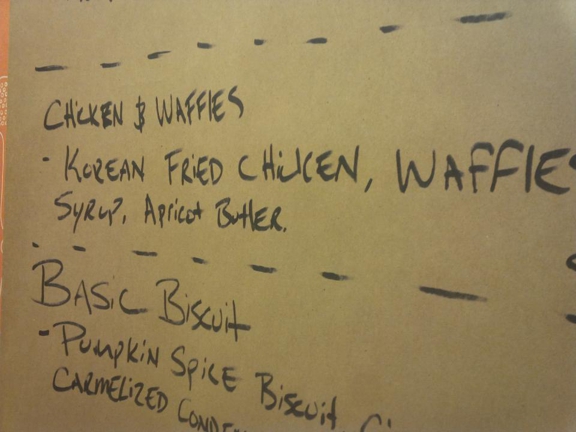 CHICKEN & WAFFLES
- KOREAN FRIED CHICKEN, WAFFLES
SYRUP, APRICOT BUTTER.
BASIC BISCUIT
- PUMPKIN SPICE BISCUIT
CARMELIZED